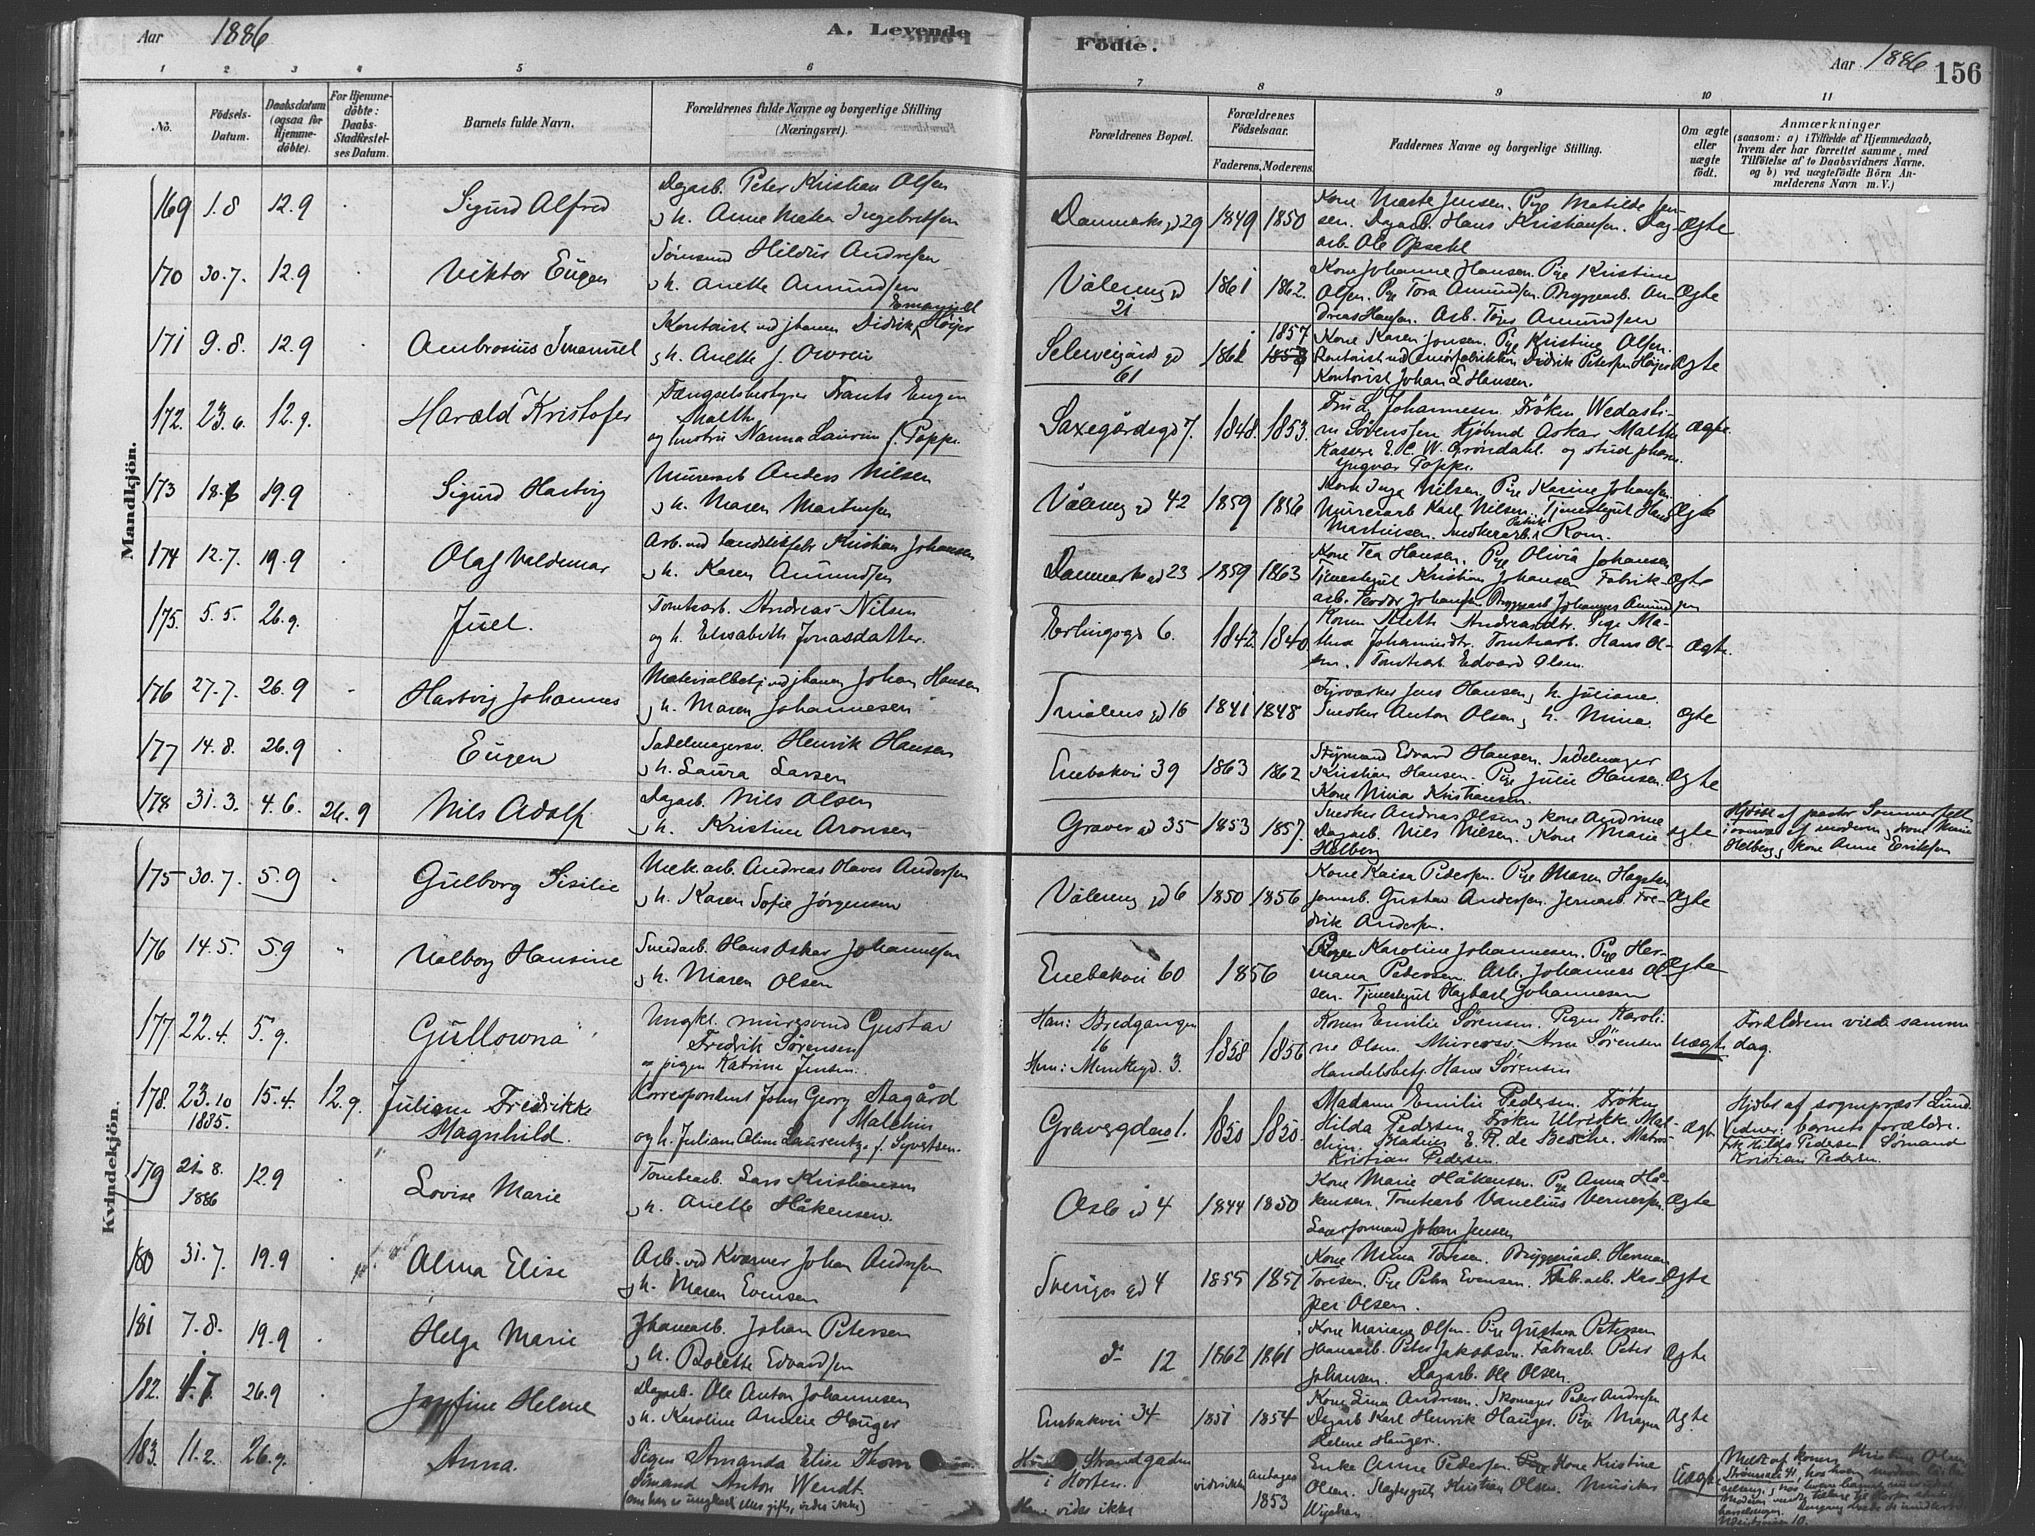 Aar 1886
A. Levende
Födte.
Aar 1886
156
1 2 3 4 5 6 7 8 9 10 11
No.
Födsels-
Datum.
Daabsdatum
(ogsaa for
Hjemme-
döbte).
For Hjemme-
döbte:
Daabs-
Stadfæstel-
ses Datum.
Barnets fulde Navn.
Forældrenes fulde Navne og borgerlige Stilling
(Næringsvei).
Forældrenes Bopæl.
Forældrenes
Födselsaar.
Faderens. Moderens.
Faddernes Navne og borgerlige Stilling.
Om ægte
eller
uægte
födt.
Anmærkninger
(saasom: a) i Tilfælde af Hjemmedaab,
hvem der har forrettet samme, med
Tilföielse af to Daabsvidners Navne.
og b) ved uægtefödte Börn An-
melderens Navn m. V.)
Mandkjön.
169 1.8 12.9 Sigurd Alfred
Dagarb. Peter Kristian Olsen
Danmarks gd 29 1849 1850
Dagarb. Hans Kristiansen. Dag-
arb. Ole Opsahl
Ægte
170 30.7. 12.9 Viktor Eugen
Hildus Andresen
h. Anette Amundsen
Vålereng gd
21
1861 1862.
Kone Johanne Hansen. Pige Kristine
Olsen. Pige Tora Amundsen. Bryggearb. An-
dreas Hansen. Arb. Amundsen
Ægte
171 9.8. 12.9 Ambrosius Imanuel
Kontorist ved jbanen Didrik Høyer
h. Anette f.
61
1861 1857
Kone Karen Jonsen. Pige Kristine Olsen.
Didrik Petersen Høyer
Kontorist Johan L Hansen.
Ægte
172. 23.6. 12.9. Harald Kristofer
Fængselsbestyrer Frants Eugen
Malthe
og hustru Nanna Laurine f. Poppe.
Saxegårdsgd 7. 1848. 1853.
Fru L. Johannesen. Frøken Wedasti-
ne Sørenssen Kjøbmd Oskar Malthe
Kasserer E. C. W. Grøndahl. og stud pharm.
Yngvar Poppe.
ægte.
173 18.6 19.9 Sigurd Hartvig
Murerarb Anders Nilsen
h. Maren Martinsen
Vålereng gd 42 1859 1856
Kone Inga Nilsen. Pige Karine Johansen.
Murerarb Karl Nilsen. Tjenestegut Hans
Martinsen. Snedkerarb. Patrik Rom.
Ægte
174 12.7. 19.9 Olaf Valdemar
Kristian Johansen
h. Karen Amundsen
Danmarks gd 23 1859 1863
Kone Tea Hansen. Pige Olivia Johansen
Tjenestegut Kristian Johansen Fabrik-
arb. Teodor Johansen Bryggearb Johannes Amundsen
Ægte
175. 5.5. 26.9. Juel.
Tomtearb. Andreas Nilsen
og h. Elisabeth Jonasdatter.
Erlingsgd 6. 1842. 1840
Pige Ma-
thea Johannesdtr. Tomtearb. Hans Ol-
sen. Tomtearb Edvard Olsen.
Ægte.
176 27.7. 26.9 Hartvig Johannes
Materialbetj ved jbanen Johan Hansen
h. Maren Johannesen
Smålens gd 16 1841 1848
Fyrværker Jens Hansen, h. Juliane.
Snedker Anton Olsen, h. Mina.
Ægte
177 14.8. 26.9 Eugen
Sadelmagersv. Henrik Hansen
h. Laura Larsen
Enebakvei 39 1863 1862
Styrmand Edvard Hansen. Sadelmager
Kristian Hansen. Pige Julie Hansen.
Kone Mina Kristiansen.
Ægte
178 31.3. 4.6. 26.9 Nils Adolf
Dagarb. Nils Olsen
h. Kristine Aronsen
Graver gd 35 1853 1857.
Snedker Andreas Olsen, kone Andrine
Dagarb. Nils Nilsen. Kone Marie
Helberg
ægte.
Hjdøbt af pastor Sommerfelt
i nærvær af moderen, kone Marie
Helberg, kone Anne Eriksen
Kvindekjön.
175 30.7. 5.9 Gulborg Sisilie
Mek.arb. Andreas Olaves Andersen
h. Karen Sofie Jørgensen
Vålereng gd 6 1850 1856
Kone Kaisa Pedersen. Pige Maren Hagsten
Jernarb. Gustav Andersen. Jernarb. Fre-
drik Andersen.
Ægte
176 14.5. 5.9 Valborg Hansine
Smedarb. Hans Oskar Johannesen
h. Maren Olsen
Enebakvei 60 1856
Karoline Johannesen. Pige Her-
mana Pedersen. Arb. Johannes Ol-
sen. Tjenestegut Hagbart Johannesen
Ægte
177. 22.4. 5.9. Gullowna
Ungkl. mursvend Gustav
Fredrik Sørensen
og pigen Katrine Jensen.
Han: Bredgangen
16
Hun: Munkegd. 3.
1858 1856
Konen Emilie Sørensen. Pigen Karoli-
ne Olsen. Murersv. Arne Sørensen
Handelsbetj. Hans Sørensen
uægte
Forældrene viede samme
dag.
178. 23.10
1885.
15.4. 12.9. Juliane Fredrikke
Magnhild.
Correspondent John Georg Aagård
Malchin
og h. Juliane Oline Laurentze f. Syvertsen.
Gravergdens 1. 1850 1850.
Madame Emilie Pedersen. Frøken
Hilda Pedersen. Frøken Ulrikke Mal-
chin. E. R. de Besche. Matros
Kristian Pedersen.
Ægte
Hjdøbt af sogneprest Lund.
Vidner: barnets forældre.
frk Hilda Pedersen, Sømand
Kristian Pedersen.
179 21.8.
1886
12.9 Lovise Marie
Tomtearb. Lars Kristiansen
h. Anette Håkensen.
Oslo gd 4 1844 1850
Kone Marie Håkensen. Pige Anna Hå-
kensen. Tomtearb Vanelius Vernersen.
Johan Jensen
Ægte
180 31.7. 19.9 Alma Elise
Arb. ved Kværner Johan Andersen
h. Maren Evensen
Sverigs gd 4 1855 1857
Kone Mina Toresen. Bryggeriarb. Herman
Toresen. Pige Petra Evensen. Fab.arb. Kas-
per Olsen.
Ægte
181 7.8. 19.9 Helga Marie
Jbanearb. Johan Petersen
h. Bolette Edvardsen
d- 12 1862 1861
Kone Mariane Olsen. Pige Gustava Petersen
Janearb. Peter Jakobsen. Fabrarb Peter
Johansen. Dagarb. Ole Olsen.
Ægte
182. 1.7. 26.9 Josefine Helene
Dagarb. Ole Anton Johannesen
h. Karoline Amelie Hauger
Enebakvei 34 1851 1854
Kone Lina Andresen. Skomager Peder Andresen
Dagarb Karl Henrik Hauger. Pige
Helene Hauger.
Ægte
183. 11.2. 26.9. Anna.
Pigen Amanda Elise Thom
Sømand Anton Wendt.
(om han er ungkarl eller gift, vides ikke)
Strandgaden
i Horten.
Han: vides ikke
vides ikke antages
1853
Enke Anne Pedersen. Kone Kristine
Olsen. Slagtergut Kristian Olsen. Musiker
Uægte
Meldt af konen Kristine Olsen